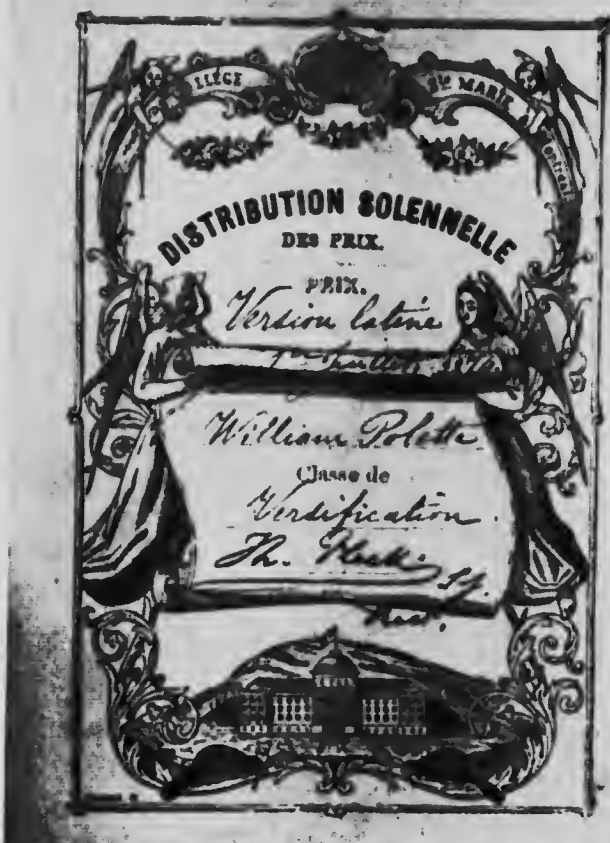 LLÉGE Ste MARIE Montréal
DISTRIBUTION SOLENNELLE
DES PRIX.
PRIX.
Version latine
1er Juillet
William Polette
Classe de
Versification
Th. S.J.